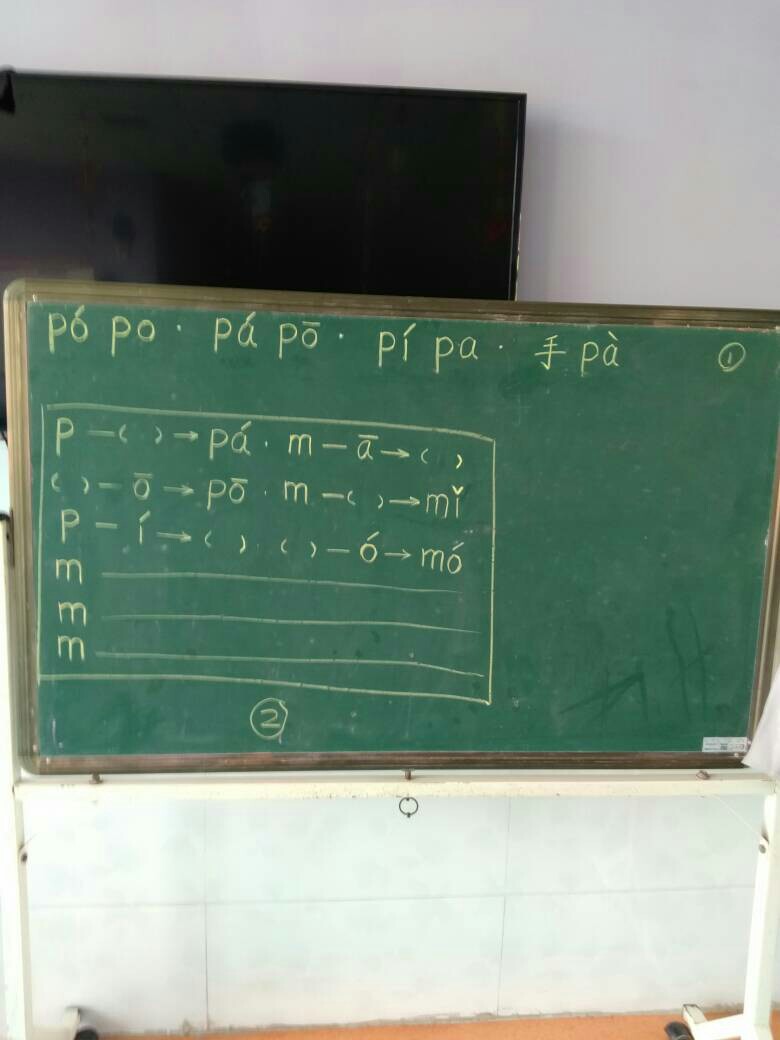 pó po · pá pō · pí pa · 手 pà ①
p —( )→ pá · m — ā →( )
( )— ō → pō · m —( )→ mǐ
p — í →( ) ( )— ó → mó
m
m
m
②